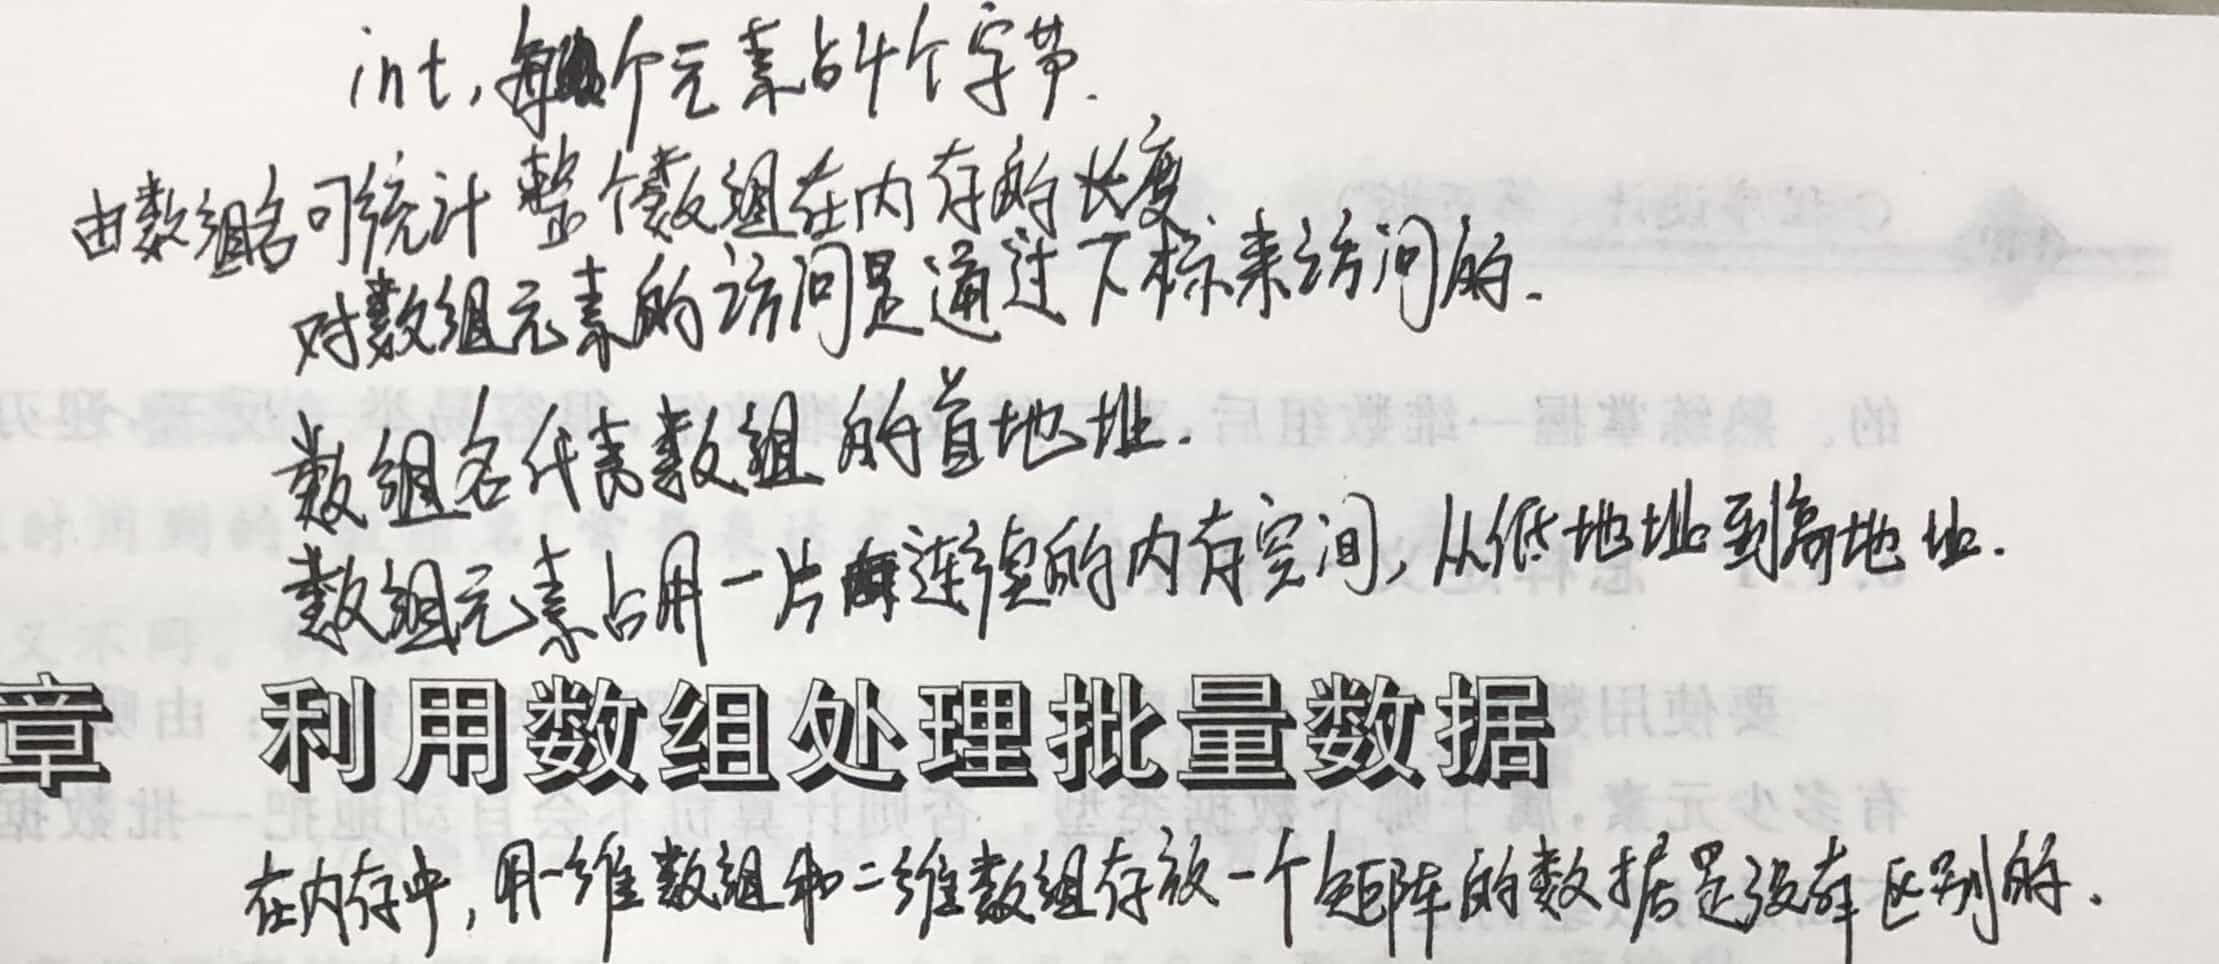 int,每个元素占4个字节.
由数组名可统计整个数组在内存的长度
对数组元素的访问是通过下标来访问的.
数组名代表数组的首地址.
数组元素占用一片连续的内存空间,从低地址到高地址.
章 利用数组处理批量数据
在内存中,用一维数组和二维数组存放一个矩阵的数据是没有区别的.